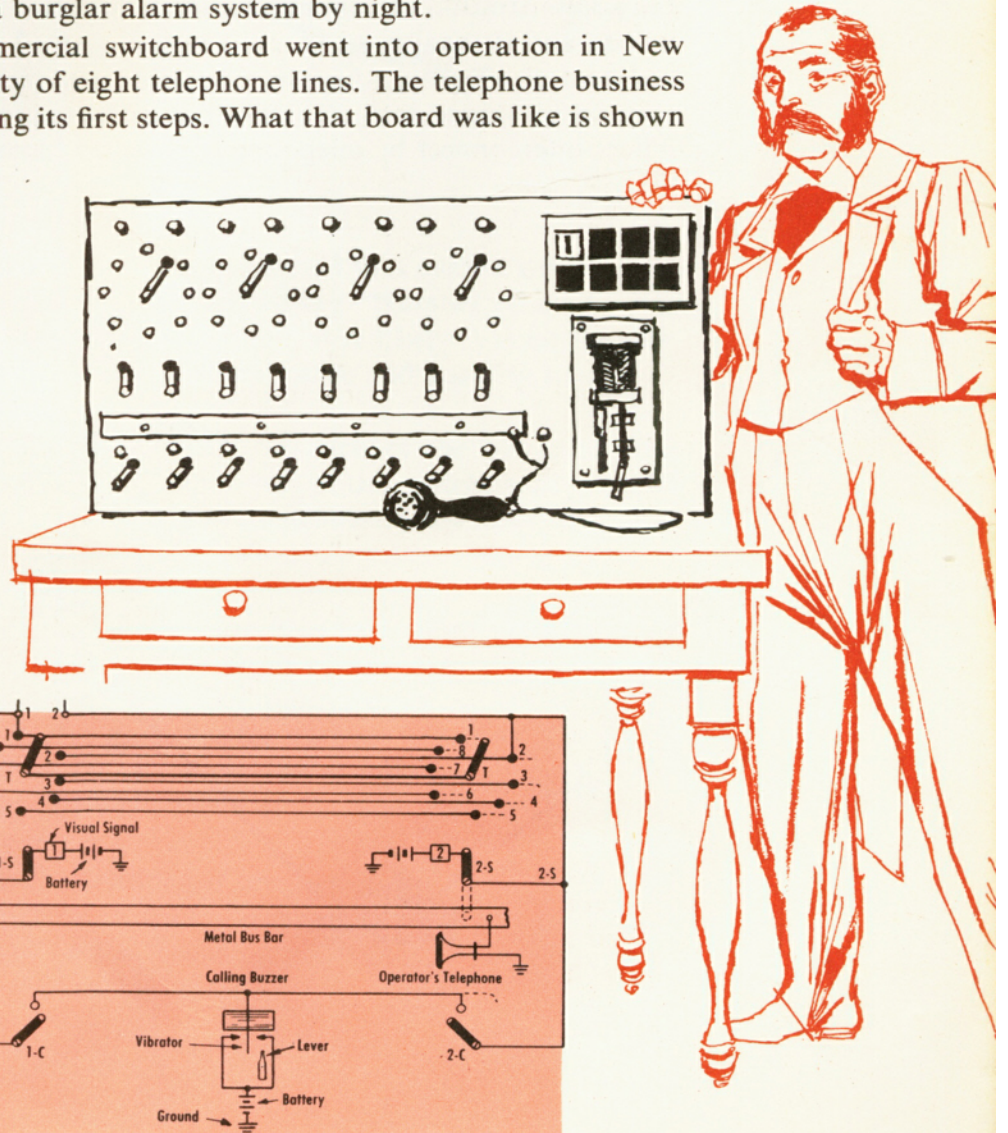 burglar alarm system by night.
mercial switchboard went into operation in New
ty of eight telephone lines. The telephone business
ng its first steps. What that board was like is shown
1
1 2
1 1
2 8 2
T 7 T
3 3
4 6 4
5 5
Visual Signal
1 2
-S 2-S 2-S
Battery
Metal Bus Bar
Calling Buzzer Operator's Telephone
Vibrator Lever
1-C 2-C
Battery
Ground